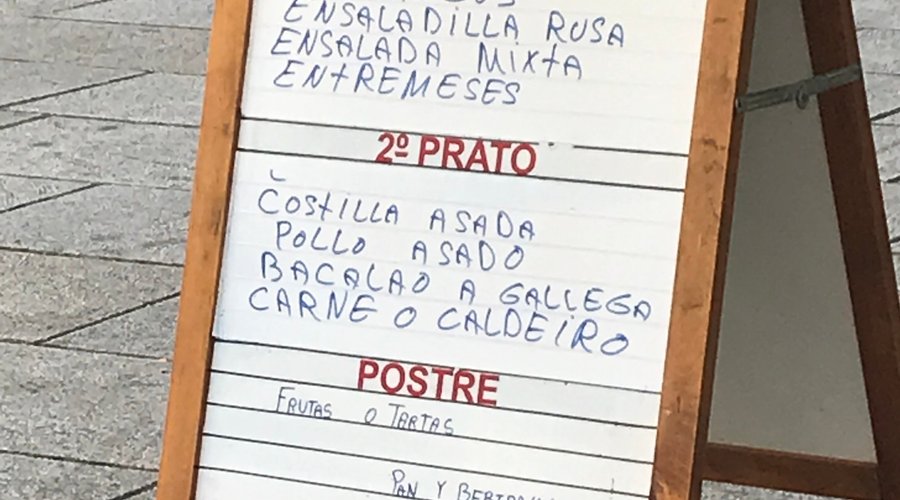 ENSALADILLA RUSA
ENSALADA MIXTA
ENTREMESES
2º PRATO
COSTILLA ASADA
POLLO ASADO
BACALAO A GALLEGA
CARNE O CALDEIRO
POSTRE
FRUTAS O TARTAS
PAN Y